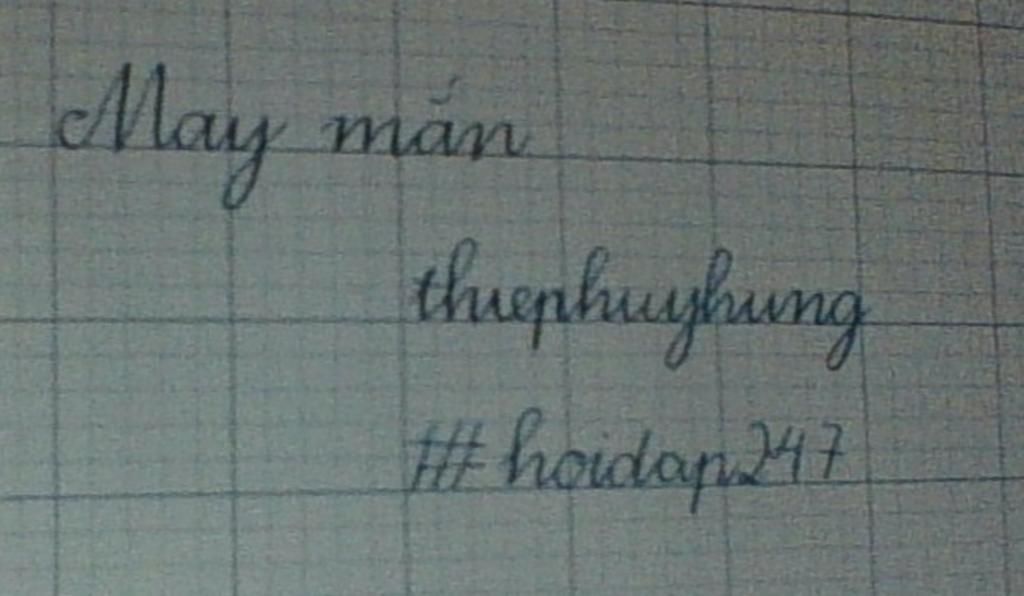 May mắn
thuephuyhung
#hoidap247